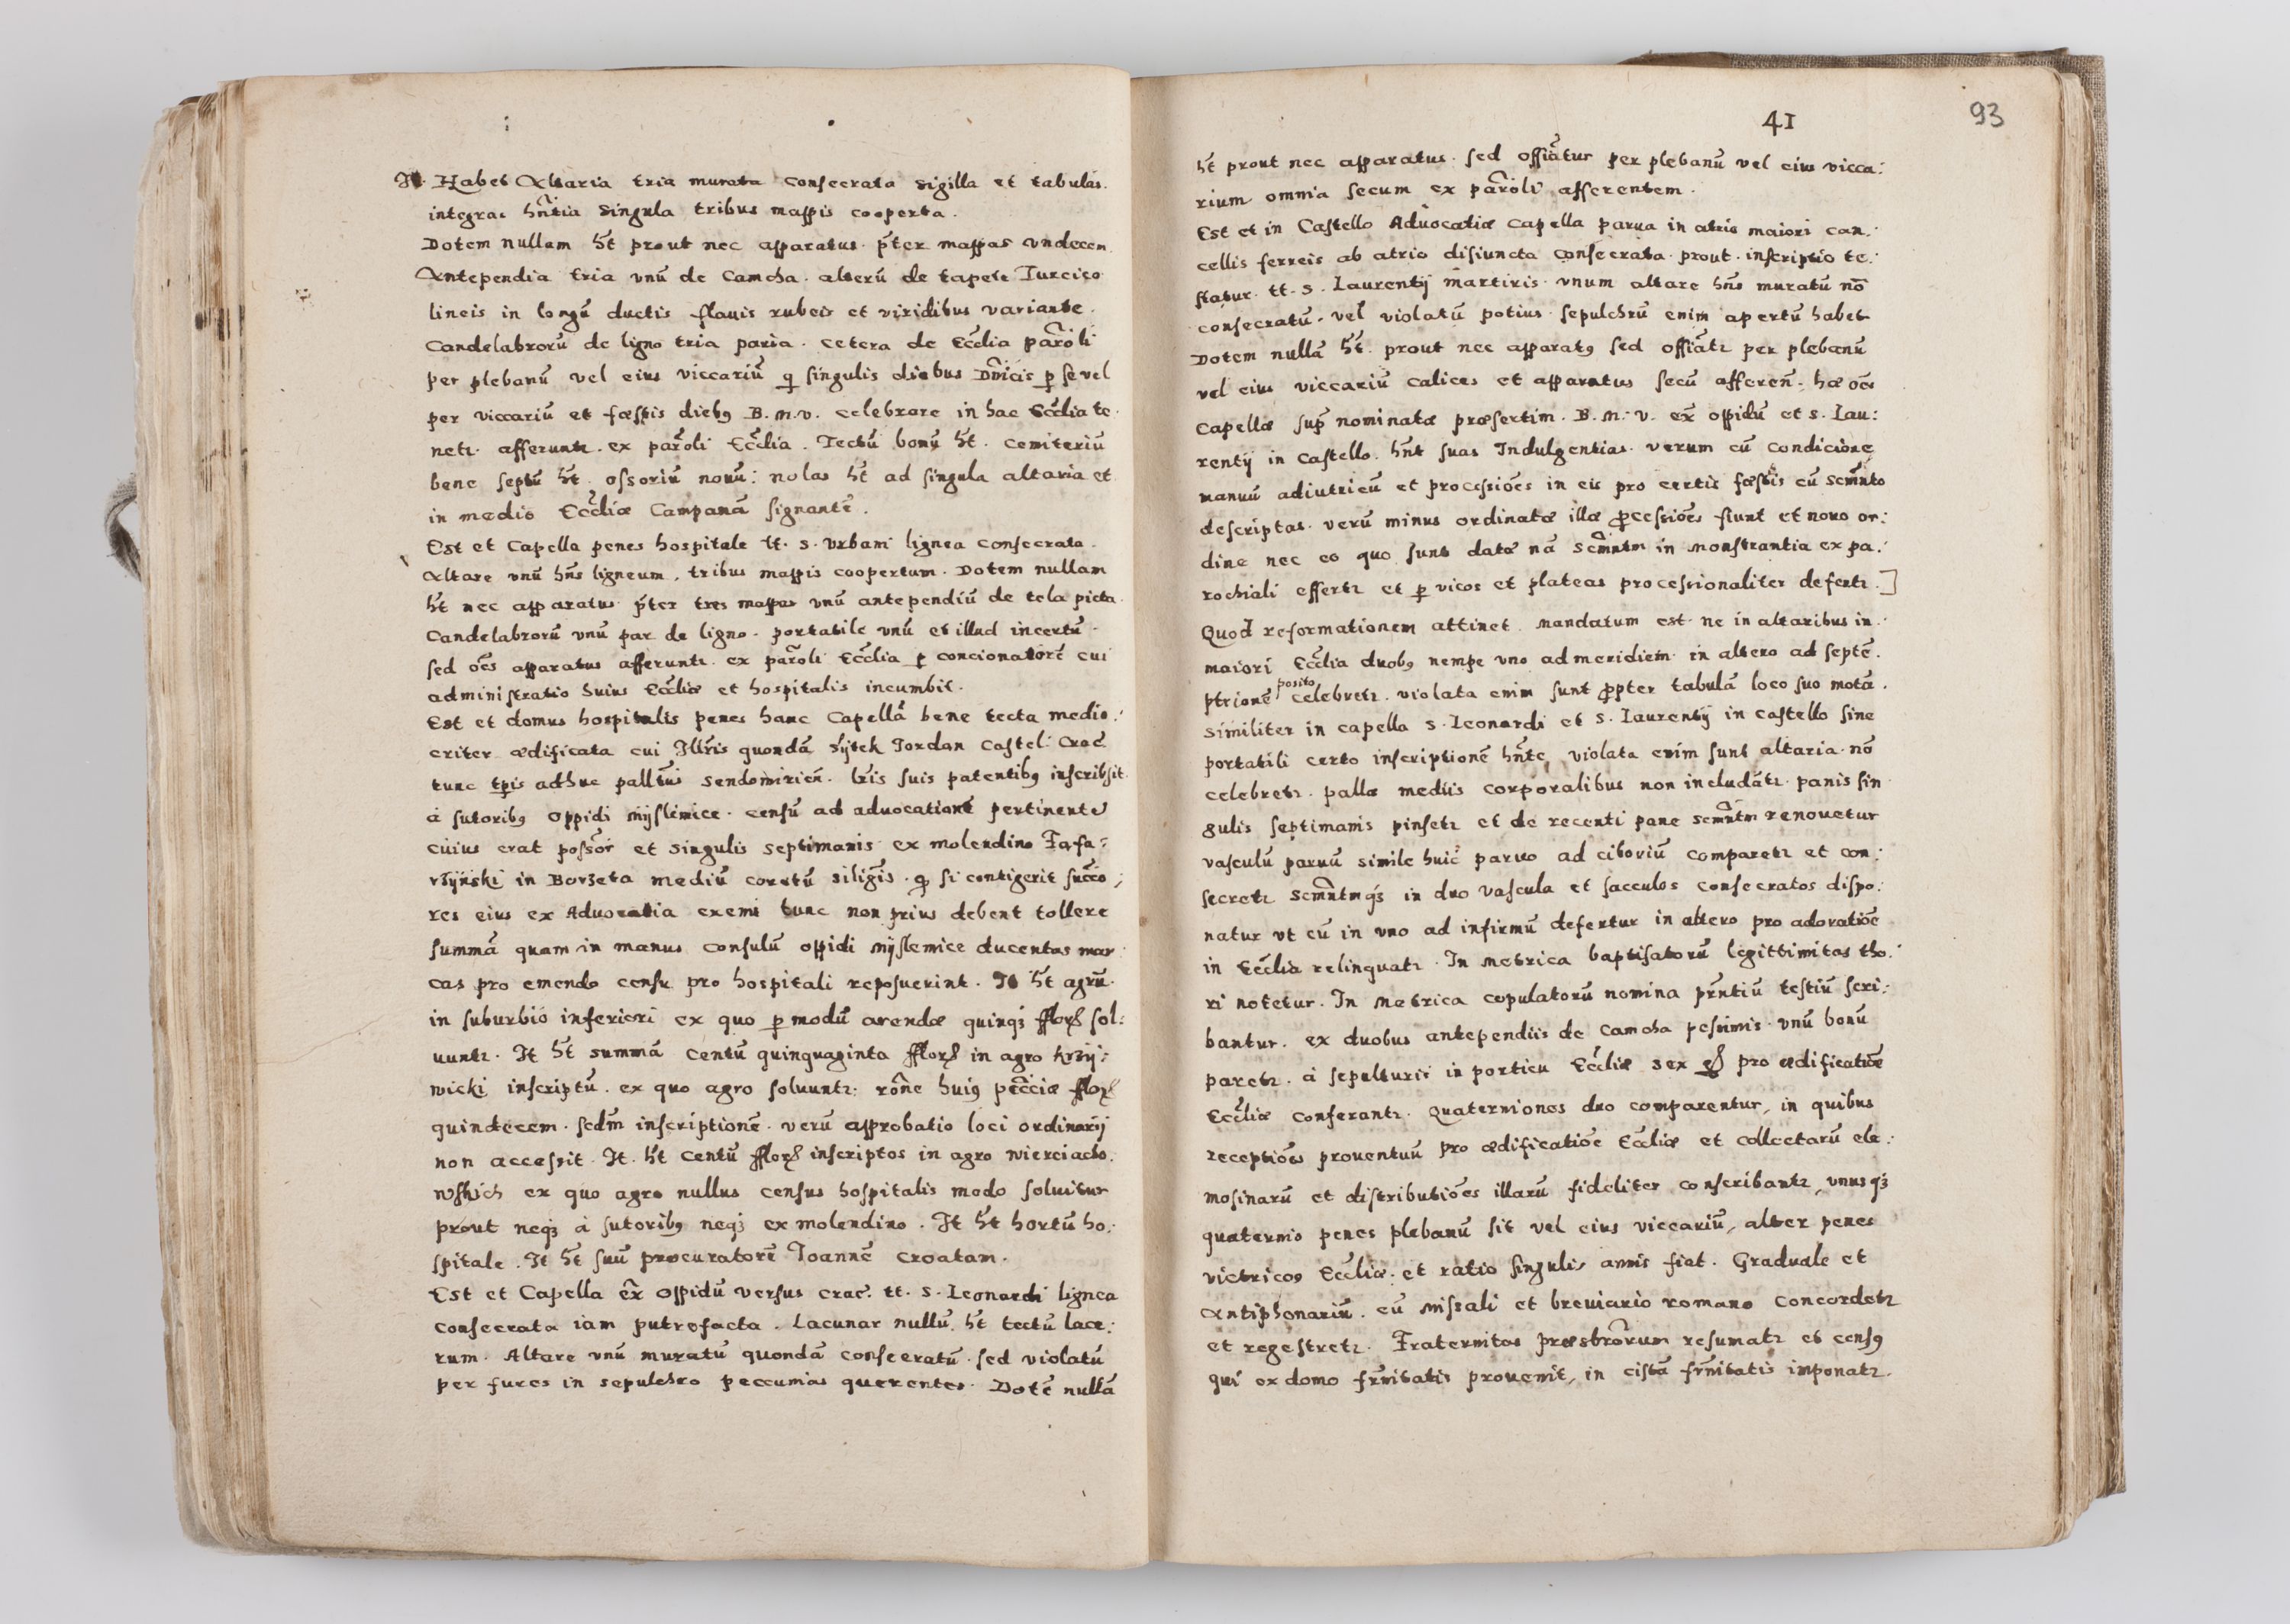 It. Habet Altaria tria murata consecrata sigilla et tabulas.
integras hñtia singula tribus mappis cooperta.
Dotem nullam h̃t prout nec apparatus. p̃ter mappas vndecem
Antependia tria vnũ de Camcha. alterũ de tapete Turcico
lineis in longũ ductis flauis rubeis et viridibus variante.
Candelabrorũ de ligno tria paria. cetera de Ecc̃lia parõli
per plebanũ vel eius viccariũ q̃ singulis diebus Dñicis p se vel
per viccariũ et fæstis dieb9 B. M. V. celebrare in hac Ecc̃lia te.
netr. afferuntr. ex parõli Ecc̃lia. Tectũ bonũ h̃t. cemiteriũ
bene septũ h̃t. ossoriũ nouũ: nolas h̃t ad singula altaria et
in medio Ecc̃liæ Campanã signantẽ.
Est et Capella penes hospitale tt. S. Vrbani lignea consecrata.
Altare vnũ hñs ligneum, tribus mappis coopertum. Dotem nullam
h̃t nec apparatus p̃ter tres mappas vnũ antependiũ de tela picta.
Candelabrorũ vnũ par de ligno. portatile vnũ et illud incertũ.
sed oẽs apparatus afferuntr. ex parõli Ecc̃lia p concionatorẽ cui
administratio huius Ecc̃liæ et hospitalis incumbit.
Est et domus hospitalis penes hanc Capellã bene tecta medio:
criter ædificata cui Illr̃is quondã Sijtek Jordan Castel: Crac̃.
tunc tp̃is adhuc pallt̃us Sendomirieñ. lr̃is suis patentib9 inscribsit
à sutorib9 oppidi Mijslimice. censũ ad aduocationẽ pertinentẽ
cuius erat possõr et singulis septimanis ex molendino
in Borzeta mediũ coretũ siligĩs. q̃ si contigerit succ̃o;
res eius ex Aduocatia exemi tunc non prius debent tollere
summã quam in manus consulũ oppidi Mijslemice ducentas mar
cas pro emendo censu pro hospitali reposuerint. It h̃t agrũ.
in suburbio inferiori ex quo p modũ arendæ quinq3 fflor sol:
uuntr. It h̃t summã centũ quinquaginta fflor in agro Krzij:
wicki inscriptũ. ex quo agro soluuntr: rõne hui9 pecc̃iæ flor
quindecem. scdm̃ inscriptionẽ. verũ approbatio loci ordinarij
non accessit. It. h̃t centũ fflor inscriptos in agro Wierciacho.
wskich ex quo agro nullus census hospitalis modo soluitur
prout neq3 à sutorib9 neq3 ex molendino. It h̃t hortũ ho:
spitale. It h̃t suũ procuratorẽ Joannẽ Croatam.
Est et Capella ex̃ oppidũ versus Crac̃. tt. S. Leonardi lignea
consecrata iam putrefacta. Lacunar nullũ. h̃t tectũ lace:
rum. Altare vnũ muratũ quondã consecratũ. sed violatũ
per fures in sepulchro peccunias querentes. Dotẽ nullã
41
93
h̃t prout nec apparatus. sed offiãtur per plebanũ vel eius vicca:
rium omnia secum ex parõli afferentem.
Est et in Castello Aduocatiæ Capella parua in atrio maiori can:
cellis ferreis ab atrio disiuncta consecrata. prout. inscriptio te:
statur. tt. S. Laurentij martiris. vnum altare hñs muratũ nõ
consecratũ. vel violatũ potius. sepulchrũ enim apertũ habet
Dotem nullã h̃t. prout nec apparat9 sed offiãtr per plebanũ
vel eius viccariũ calices et apparatus secũ affereñ. hæ oẽs
Capellæ sup̃ nominatæ præsertim. B. M. V. ex̃ oppidũ et S. Lau:
rentij in Castello. hñt suas Indulgentias. verum cũ condicione
manuũ adiutricũ et processiões in eis pro certis fæstis cũ Scm̃nto
descriptas. verũ minus ordinatæ illæ p̃cessiões fiunt et nouo or:
dine nec eo quo sunt datæ nã Scm̃ntm in Monstrantia ex pa:
rochiali effertr et p vicos et plateas processionaliter defertr.]
Quod reformationem attinet. mandatum est. ne in altaribus in.
maiori Ecc̃lia duob9 nempe vno ad meridiem. in altero ad septẽ.
ptrionẽ posito celebretr. violata enim sunt p̃pter tabulã loco suo motã.
similiter in capella S. Leonardi et S. Laurentij in castello sine
portatili certo inscriptionẽ hñte, violata enim sunt altaria. nõ
celebretr. pallæ mediis corporalibus non includãtr. panis sin
gulis septimanis pinsetr et de recenti pane scm̃ntm renouetur
vasculũ paruũ simile huic paruo ad ciboriũ comparetr et con:
secretr Scm̃ntmq3 in duo vascula et sacculos consecratos dispo:
natur vt cũ in vno ad infirmũ defertur in altero pro adoratiõe
in Ecc̃lia relinquatr. In Metrica baptisatorũ legittimitas tho:
ri notetur. In Metrica copulatorũ nomina pr̃ntiũ testiũ scri:
bantur. ex duobus antependiis de Camcha pessimis. vnũ bonũ
paretr. à sepulturis in porticu Ecc̃liæ sex pro ædificatiõe
Ecc̃liæ conferantr. Quaterniones duo comparentur, in quibus
receptiões prouentuũ pro ædificatiõe Ecc̃liæ et collectarũ ele:
mosinarũ et distributiões illarũ fideliter conscribantr, vnusq3
quaternio penes plebanũ sit vel eius viccariũ, alter penes
victricos Ecc̃liæ: et ratio singulis annis fiat. Graduale et
Antiphonariũ. cũ Missali et breuiario romano concordetr
et regestretr. Fraternitas præsbr̃orum resumatr et cens9
qui ex domo frñitatis prouenit, in cistã frñitatis imponatr.